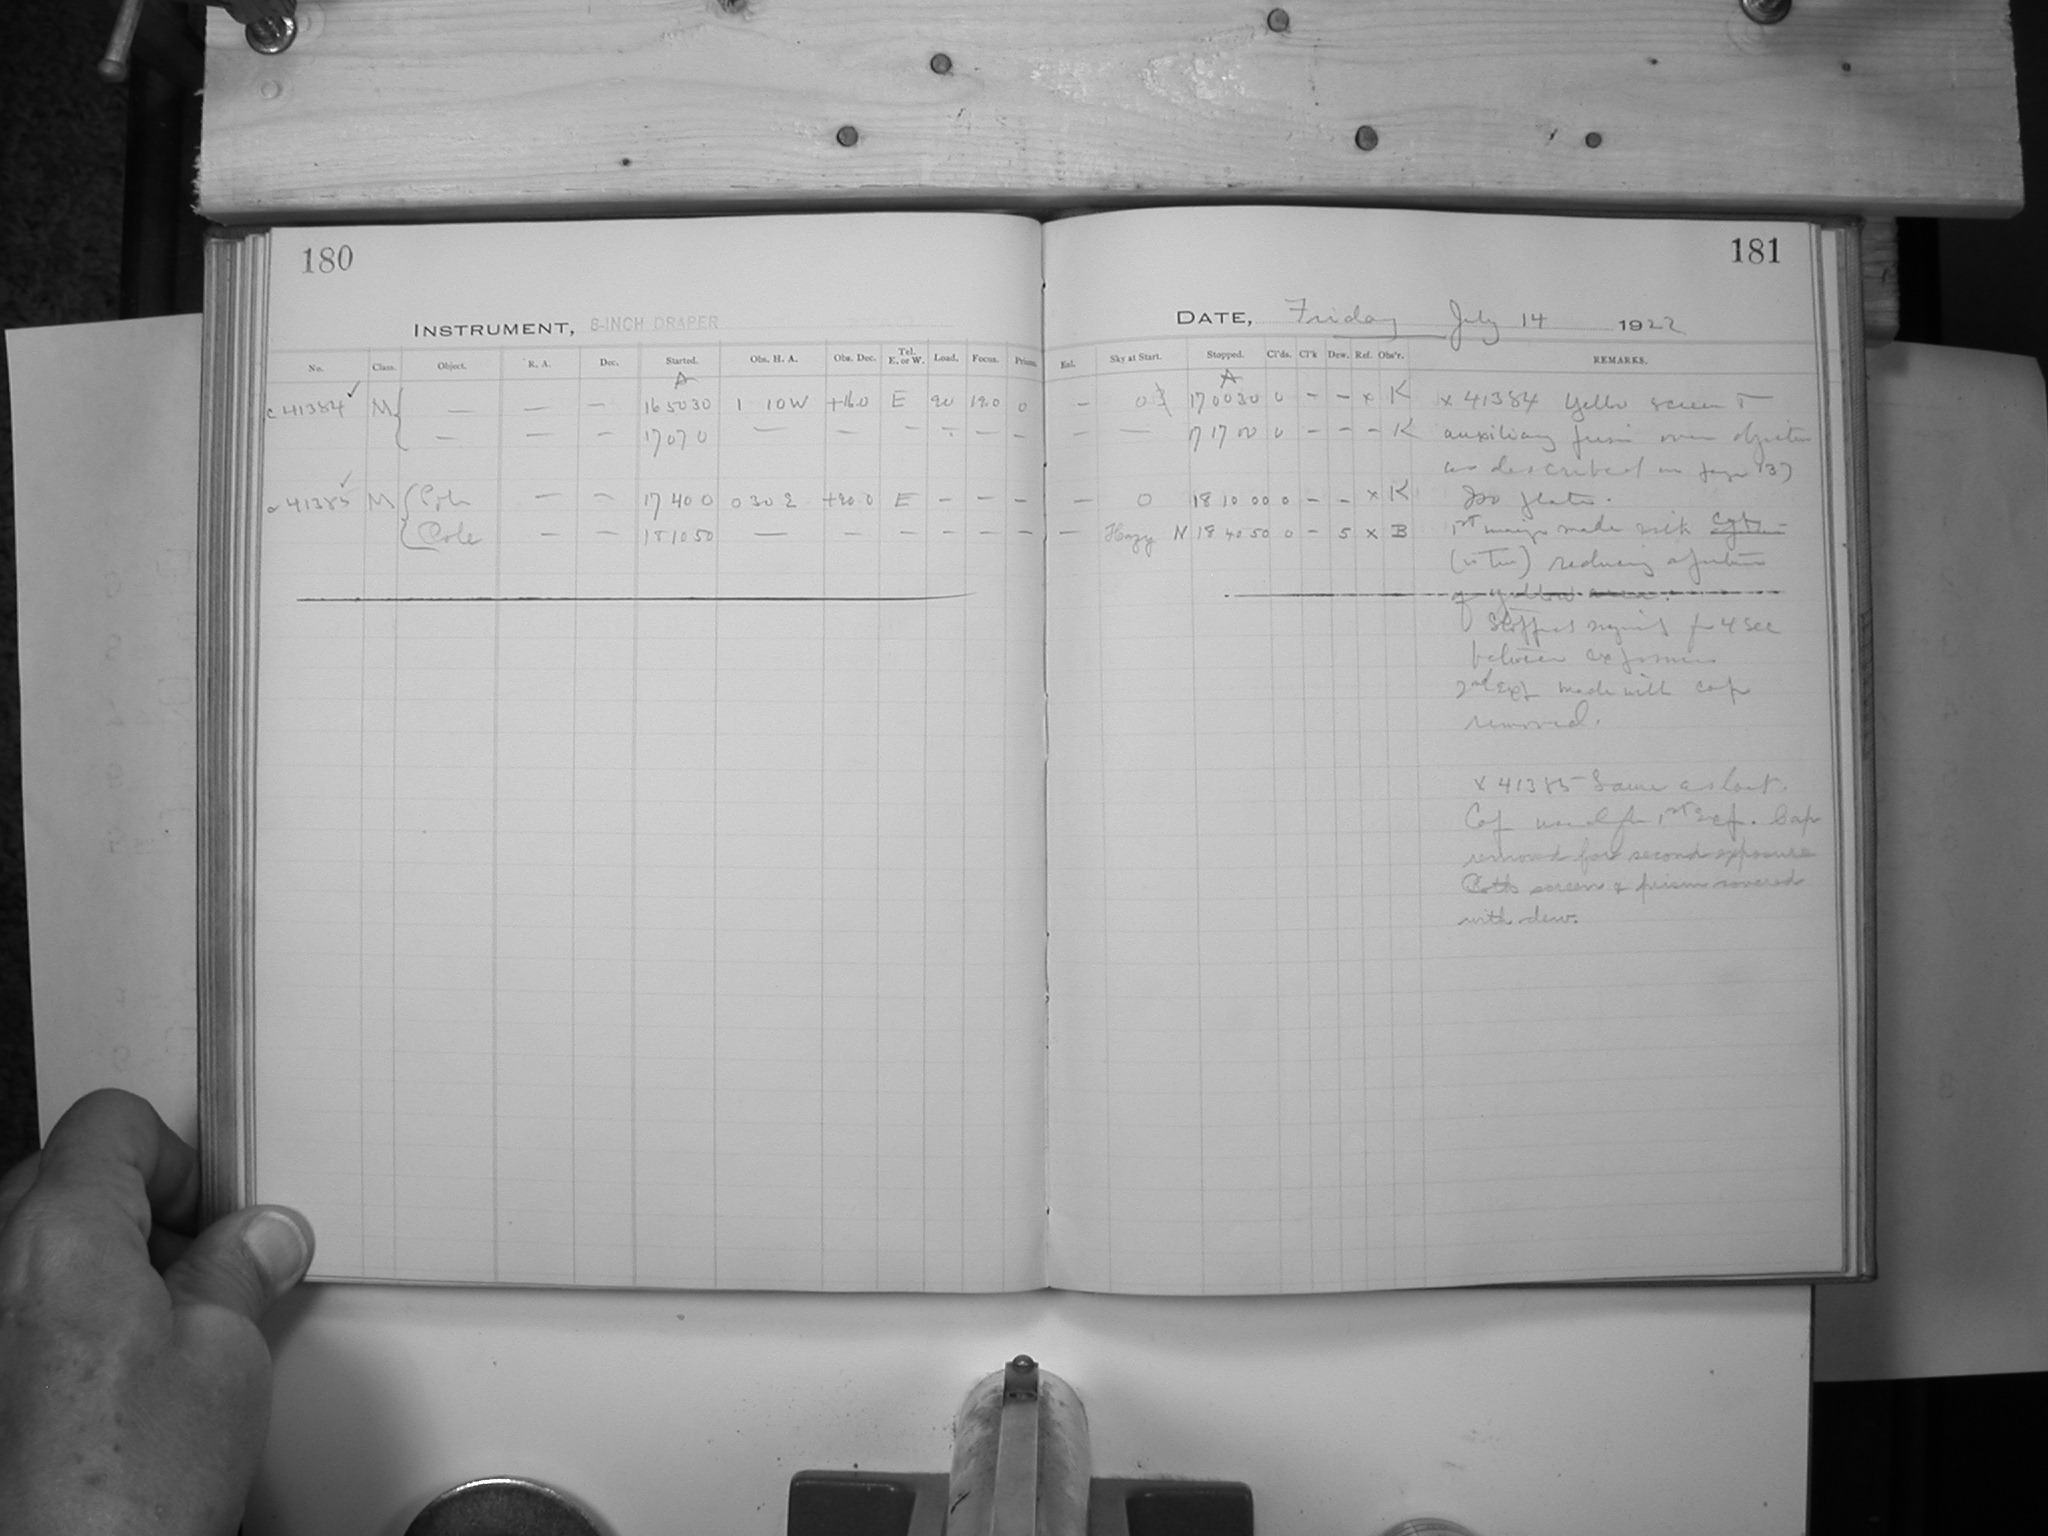 180
181
INSTRUMENT, 8-INCH DRAPER
DATE, Friday July 14 1922
No. Class. Object. R. A. Dec. Started. Obs. H. A. Obs. Dec. Tel. E. or W. Load. Focus. Prism
Enl. Sky at Start. Stopped. Cl'ds. Cl'k Dew. Ref. Obs'r. REMARKS.
A
A
c 41384 ✓ M { — — — 16 50 30 1 10 W +16.0 E 90 19.0 0
— 0 17 00 30 0 — — x K x 41384 Yello screen
— — — 17 07 0 — — — — — —
— — 17 17 00 0 — — — K auxiliary over
as described on page 137
41385 ✓ M { Pole — — 17 40 0 0 30 E +90.0 E — — —
— 0 18 10 00 0 — — x K Iso plate.
Pole — — 18 10 50 — — — — — —
— Hazy N 18 40 50 0 — 5 x B 1st made with
reducing
of yellow
Stopped for 4 sec
between exposures
2nd Exp made with cap
removed.
x 41385 Same as last.
Cap used for 1st Exp. Cap
removed for second exposure
Both screen & prism covered
with dew.